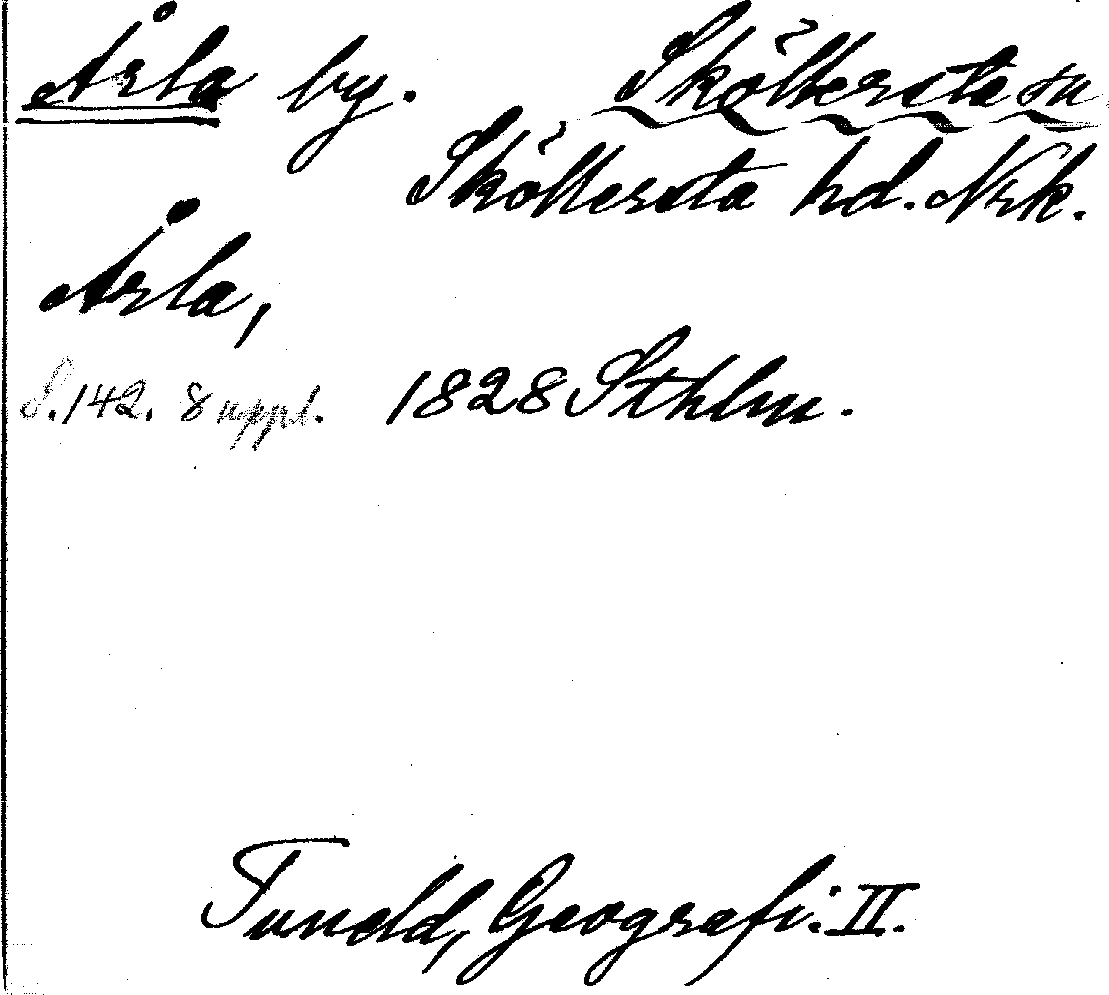 Årla by. Sköllersta sn
Sköllersta hd. Nrk.
Årla,
S. 142. 8 uppl. 1828 Sthlm.
Tuneld, Geografi. II.